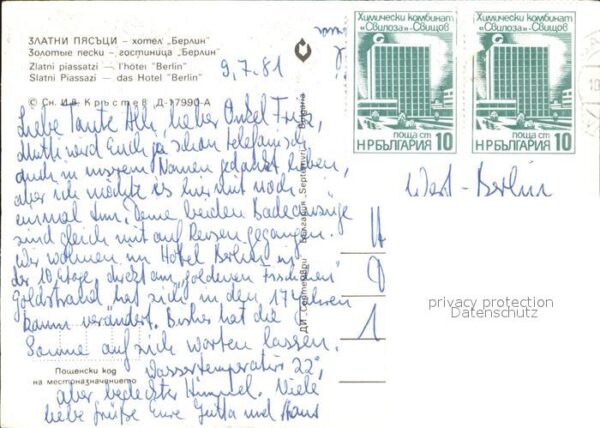 ЗЛАТНИ ПЯСЪЦИ – хотел „Берлин"
Золотые пески – гостиница „Берлин"
Zlatni piassatzi – l'hôtel "Berlin"
Slatni Piassazi – das Hotel "Berlin"
9.7.81
© Сн. Ив. Кръстев Д-17990-А
Liebe Tante Alli, lieber Onkel Fritz,
Mutti wird Euch ja schon telefonisch
auch in unserem Namen gedankt haben,
aber ich möchte es hiermit noch
einmal tun. Deine beiden Badeanzüge
sind gleich mit auf Reisen gegangen.
Wir wohnen im Hotel Berlin in
der 10. Etage direkt am „goldenen
Goldstrand hat sich in den 17 Jahren
kaum verändert. Bisher hat die
Sonne auf sich warten lassen.
Wassertemperatur 22°,
aber bedeckter Himmel. Viele
liebe Grüße Eure Jutta und Hans
Пощенски код
на местоназначението
ДИ „Септември" България „Septemvri" Bulgaria
Химически комбинат
«Свилоза»-Свищов
ПОЩА СТ
НР БЪЛГАРИЯ 10
Химически комбинат
«Свилоза»-Свищов
ПОЩА СТ
НР БЪЛГАРИЯ 10
West-Berlin
privacy protection
Datenschutz